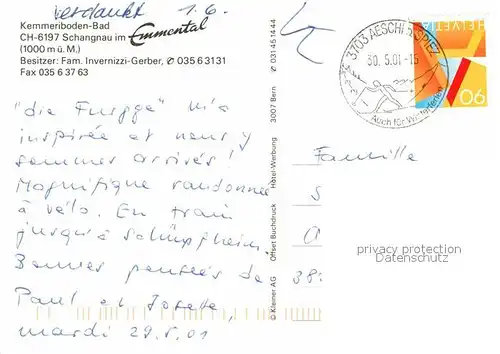 verdankt 1.6.
Kemmeriboden-Bad
CH-6197 Schangnau im Emmental
(1000 m ü. M.)
Besitzer: Fam. Invernizzi-Gerber, ✆ 035 6 31 31
Fax 035 6 37 63
"die Furgge" m'a
inspirée et nous y
sommes arrivés!
Magnifique randonnée
à vélo. En train
jusqu'à Schüpfheim.
Bonnes pensées de
Paul et Josette,
mardi 29.5.01
© Klemer AG Offset Buchdruck Hotel-Werbung 3007 Bern ✆ 031 45 14 44
3703 AESCHI B. SPIEZ
30.5.01-15
Auch für Winterferien
HELVETIA
90
Famille
S
38
privacy protection
Datenschutz